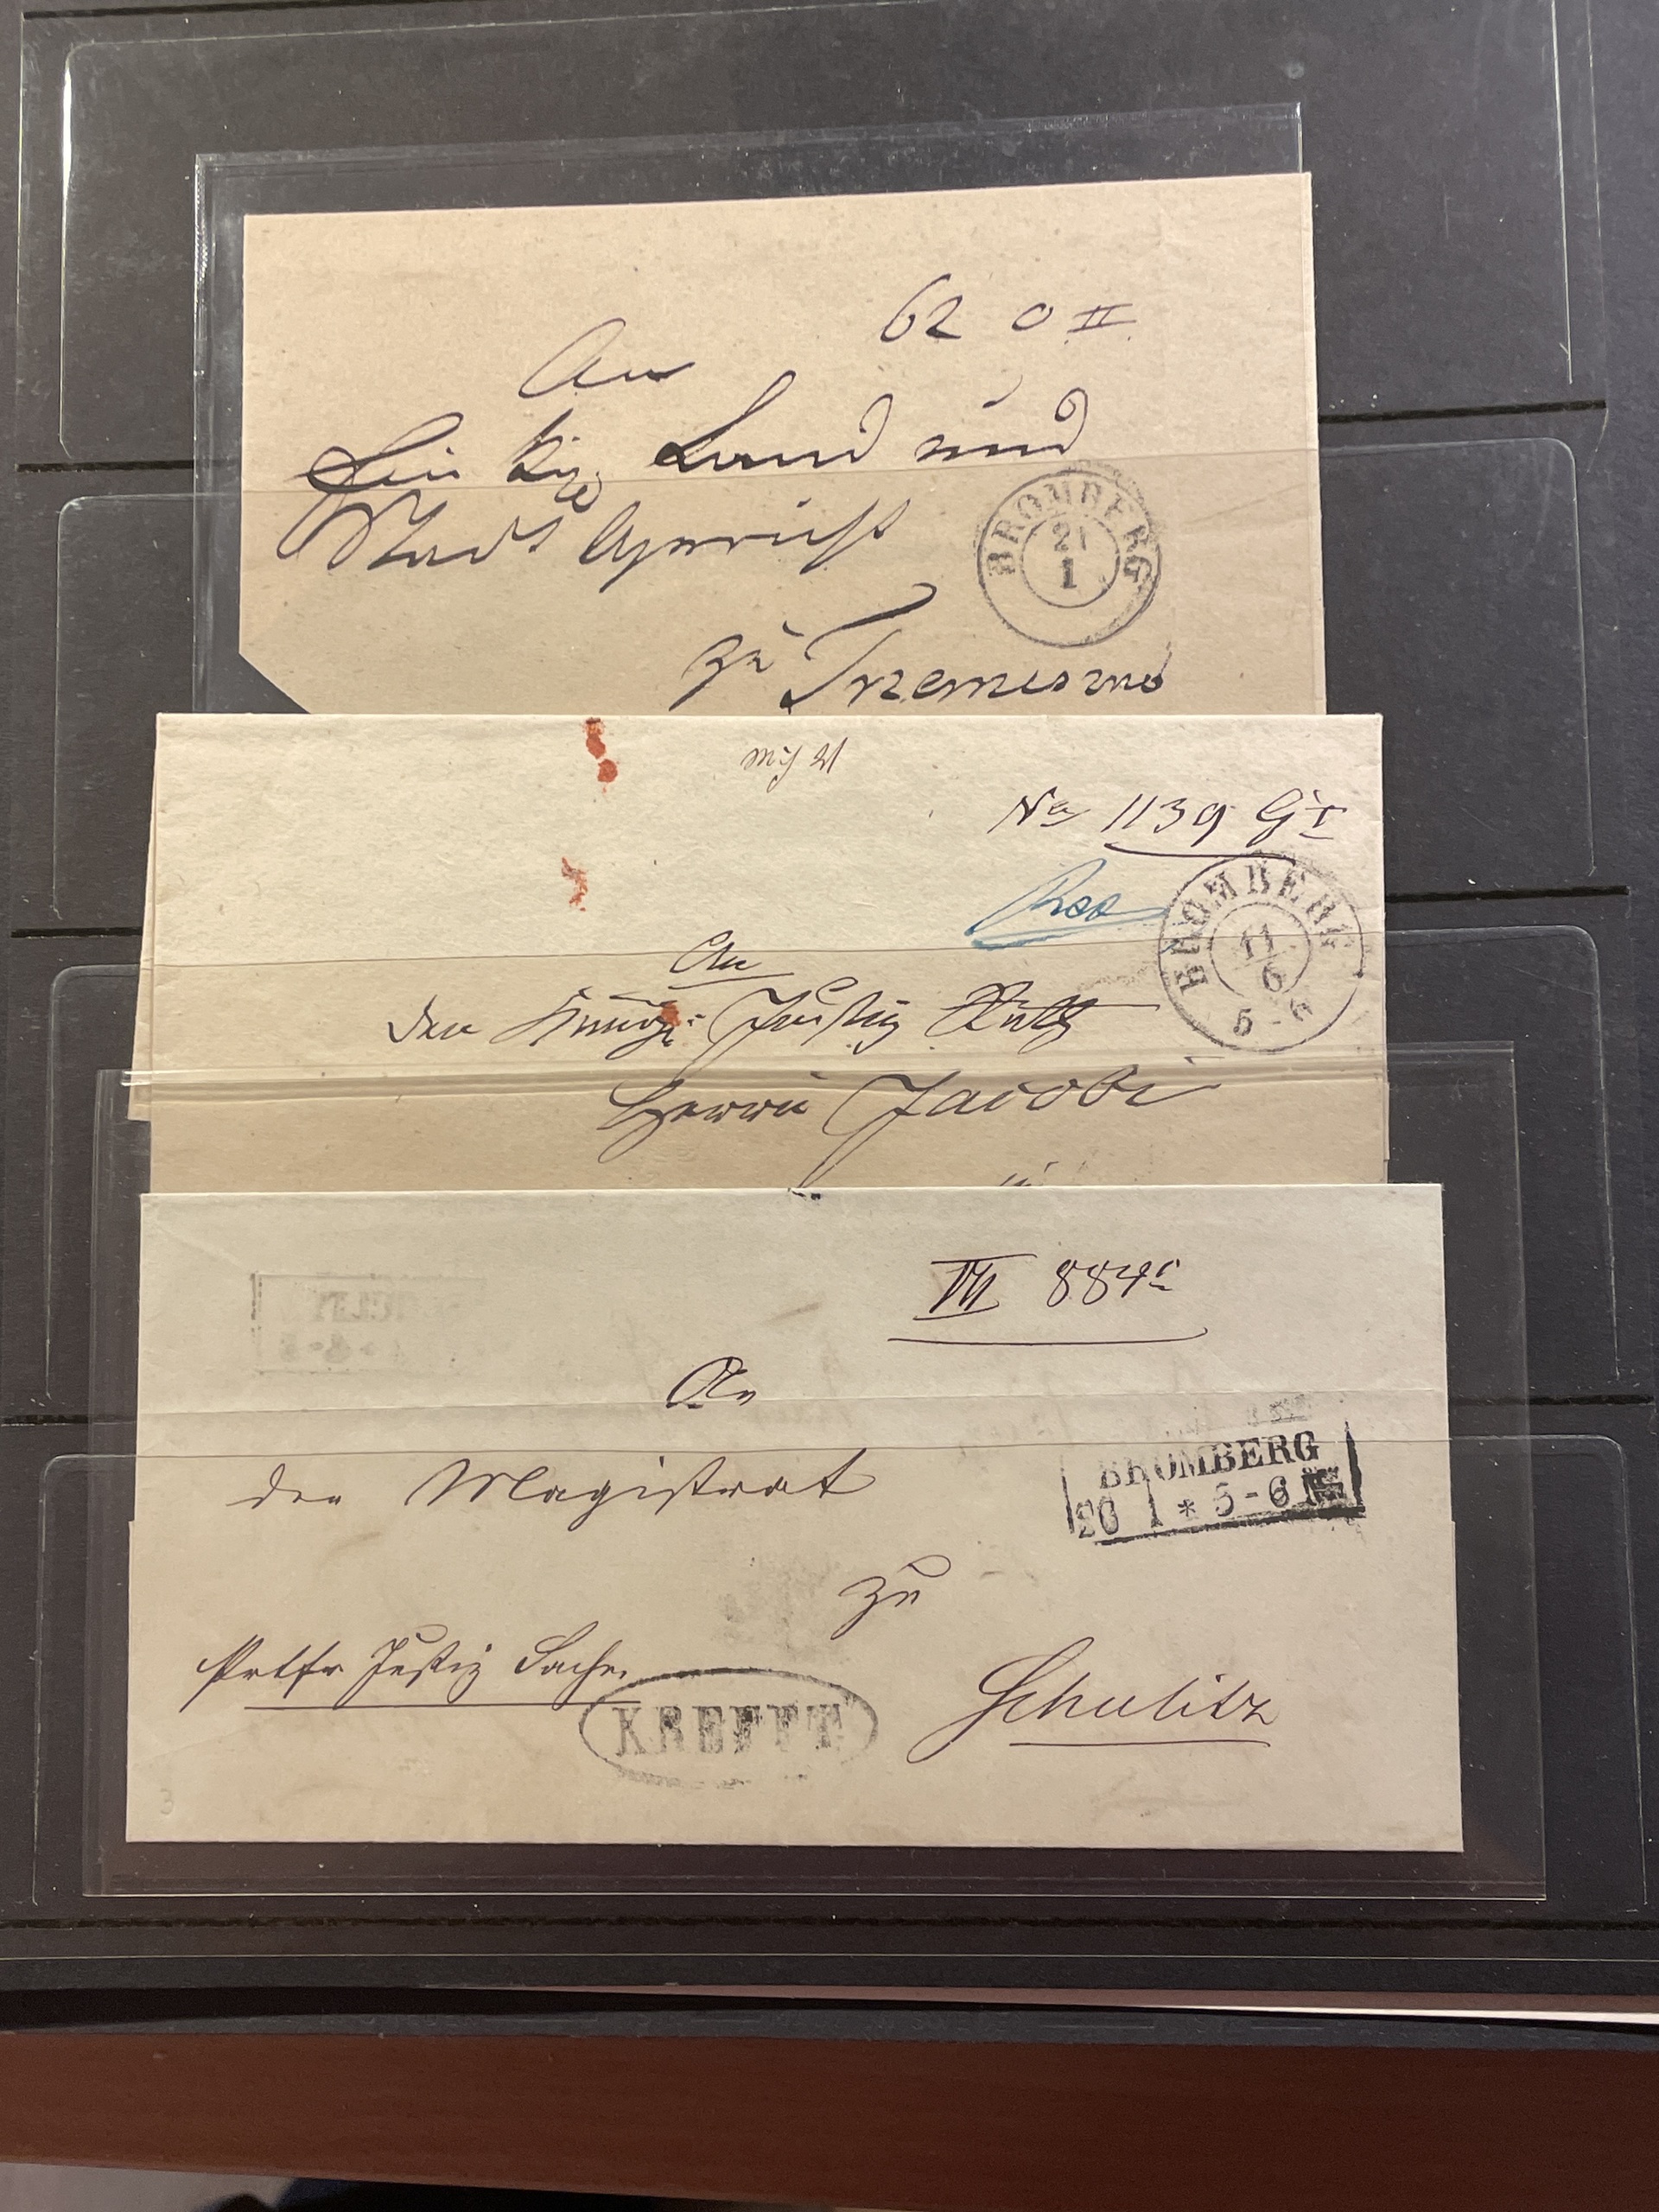 62 O II
An
Ein Kg. Land und
Stadt Gericht
BROMBERG
21
1
zu Trzemeszno
No 1139 G I
BROMBERG
11
6
5-6
An
den Königl: Justiz Rath
Herrn Jacobi
VII 884
An
den Magistrat
BROMBERG
20 1 * 5-6
zu
Justiz Sache
KREFFT
Schulitz
3